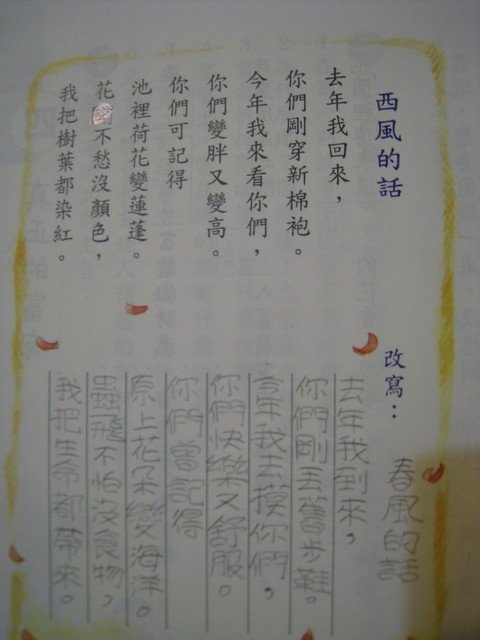 西風的話
去年我回來，
你們剛穿新棉袍。
今年我來看你們，
你們變胖又變高。
你們可記得
池裡荷花變蓮蓬。
花 不愁沒顏色，
我把樹葉都染紅。
改寫：
春風的話
去年我到來，
你們剛丟舊步鞋。
今年我去摸你們，
你們快樂又舒服。
你們曾記得
原上花朵變海洋。
蟲飛不怕沒食物，
我把生命都帶來。